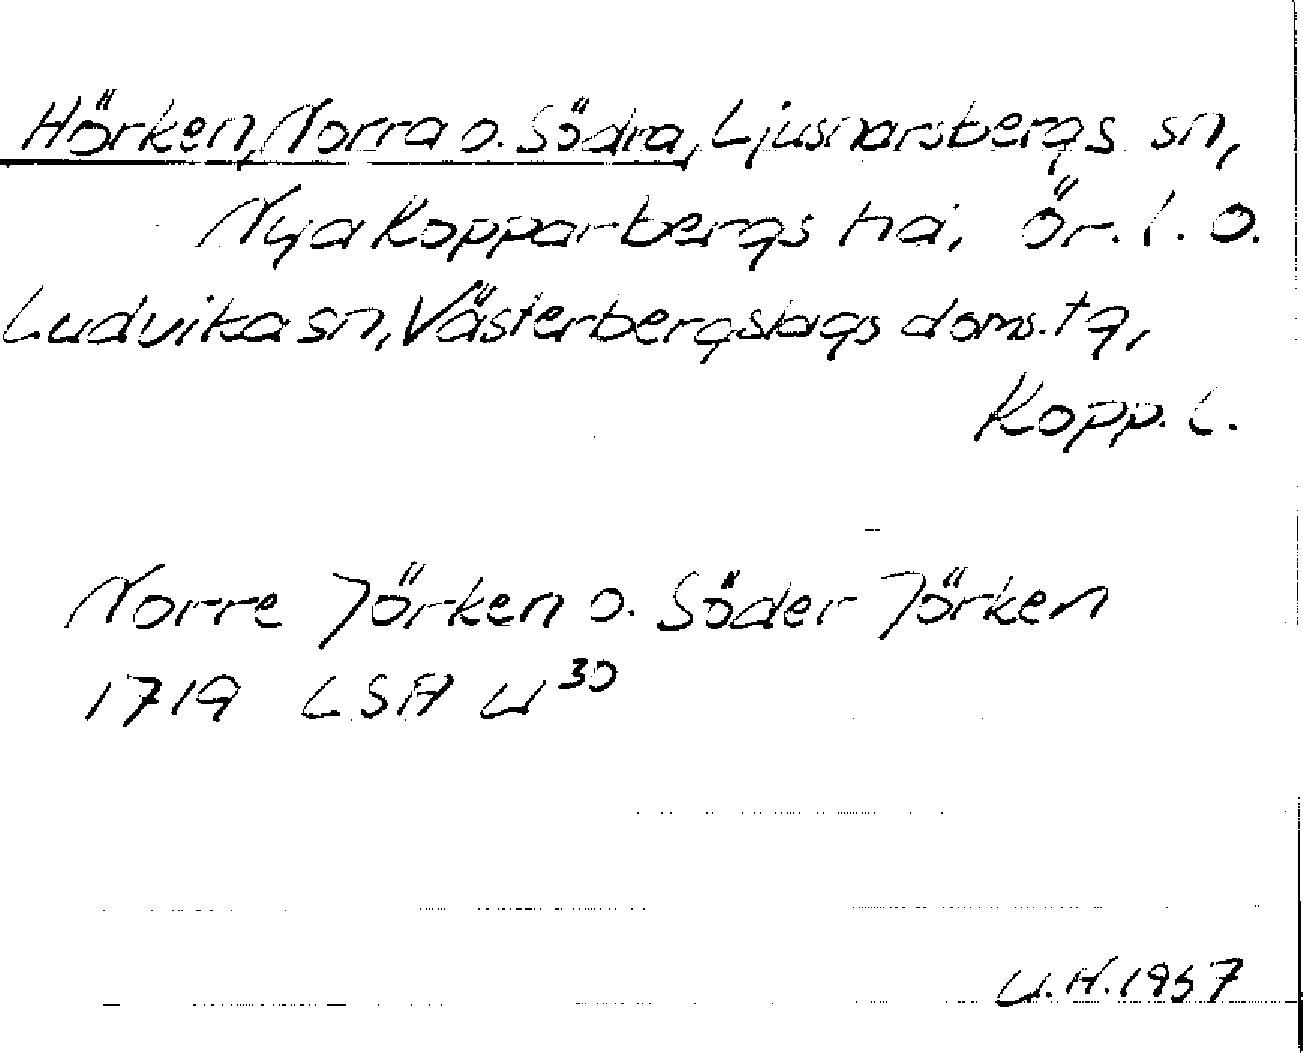 Hörken, Norra o. Södra, Ljusnarsbergs sn,
Nya Kopparbergs hd, Ör. l. o.
Ludvika sn, Västerbergslags doms. tg,
Kopp. l.
Norre Jörken o. Söder Jörken
1719 LSA U³⁰
U.H. 1957